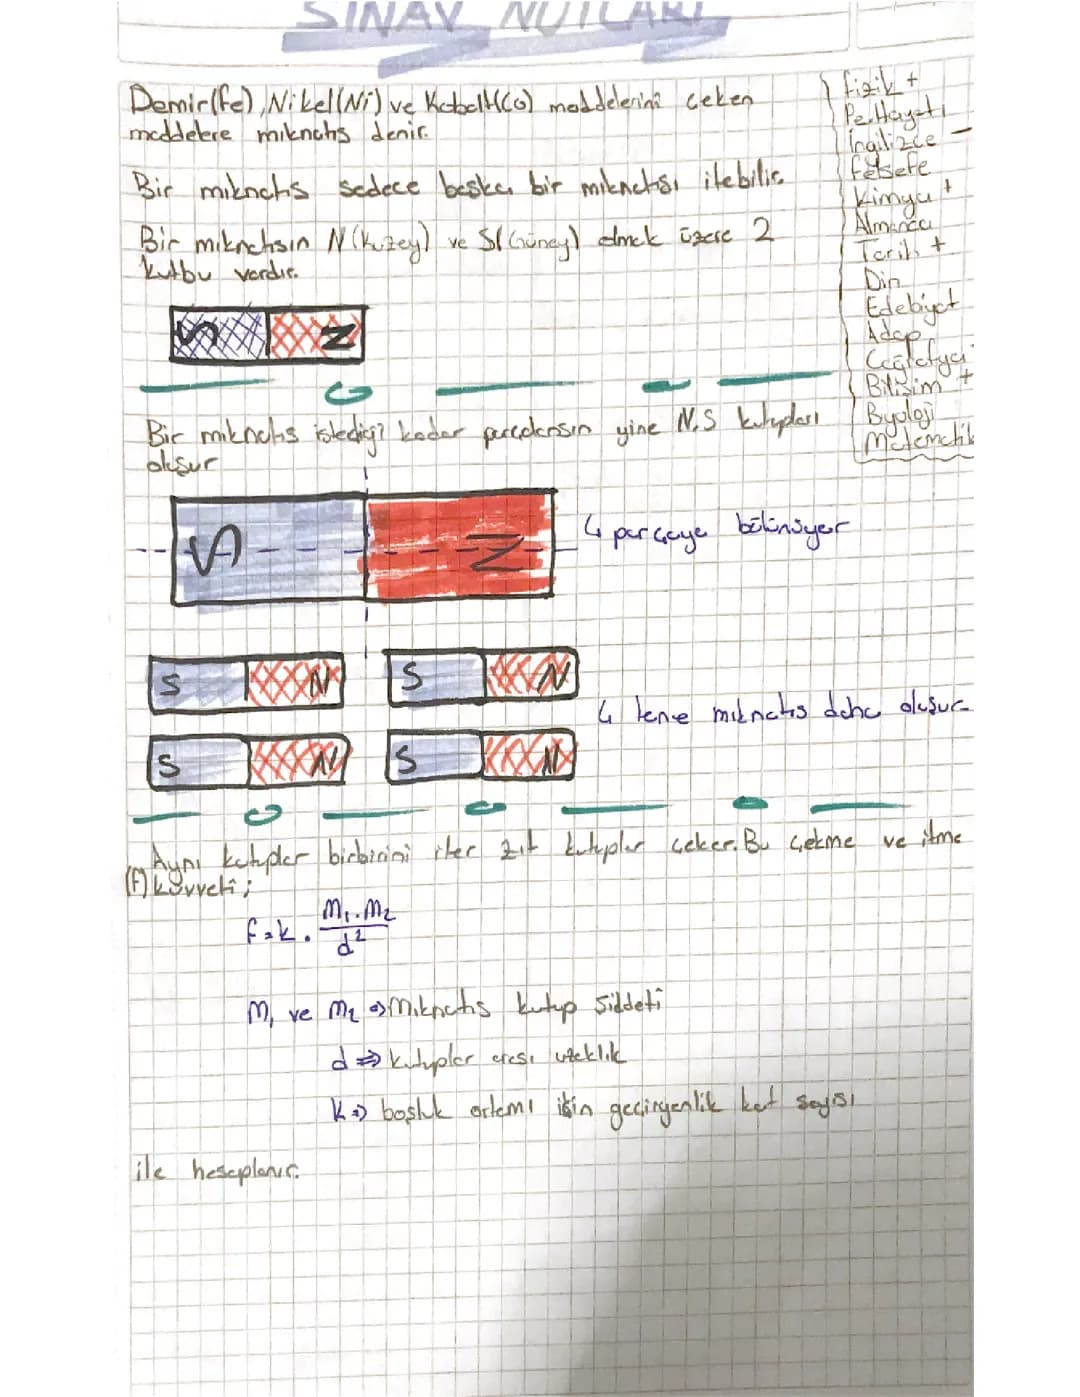 SINAV NOTLARI
Demir(fe), Nikel(Ni) ve Kobalt(Co) maddelerini çeken
maddelere mıknatıs denir.
Bir mıknatıs sadece başka bir mıknatısı itebilir.
Bir mıknatısın N (Kuzey) ve S (Güney) olmak üzere 2
kutbu vardır.
S N
Bir mıknatıs istediği kadar parçalansın yine N,S kutupları
oluşur
S N
4 parçaya bölünüyor
S N S N
4 tane mıknatıs daha oluşur
S N S N
Aynı kutuplar birbirini iter zıt kutuplar çeker. Bu çekme ve itme
(F) kuvveti;
f=k. m₁.m₂
d²
m₁ ve m₂ => Mıknatıs kutup şiddeti
d => kutuplar arası uzaklık
k => boşluk ortamı için geçirgenlik kat sayısı
ile hesaplanır.
fizik +
Pe.Hayatı
İngilizce –
felsefe
Kimya +
Almanca
Tarih +
Din
Edebiyat
Adap
Coğrafya
Bilişim +
Byoloji
Matematik